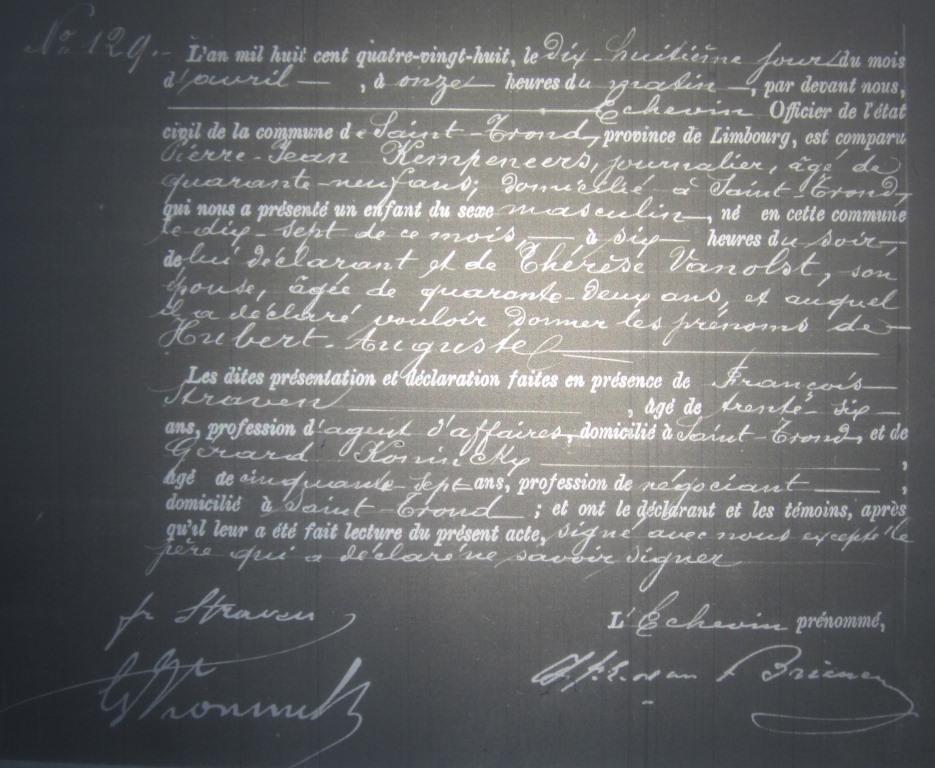 No. 129.-
L'an mil huit cent quatre-vingt-huit, le dix-huitième jour du mois
d'avril —, à onze heures du matin —, par devant nous,
— Echevin Officier de l'état
civil de la commune de Saint-Trond, province de Limbourg, est comparu
Pierre-Jean Kempeneers, journalier, âgé de
quarante-neuf ans, domicilié à Saint-Trond,
qui nous a présenté un enfant du sexe masculin —, né en cette commune
le dix-sept de ce mois, — à six — heures du soir —
de lui déclarant et de Thérèse Vanolst, son
épouse, âgée de quarante-deux ans, et auquel
il a déclaré vouloir donner les prénoms de —
Hubert-Auguste —
Les dites présentation et déclaration faites en présence de François —
Straven —, âgé de trente-six —
ans, profession d'agent d'affaires, domicilié à Saint-Trond, et de
Gérard Koninckx —,
âgé de cinquante-sept ans, profession de négociant —,
domicilié à Saint-Trond — ; et ont le déclarant et les témoins, après
qu'il leur a été fait lecture du présent acte, signé avec nous excepté le
père qui a déclaré ne savoir signer
fr Straven
L'Echevin prénommé,